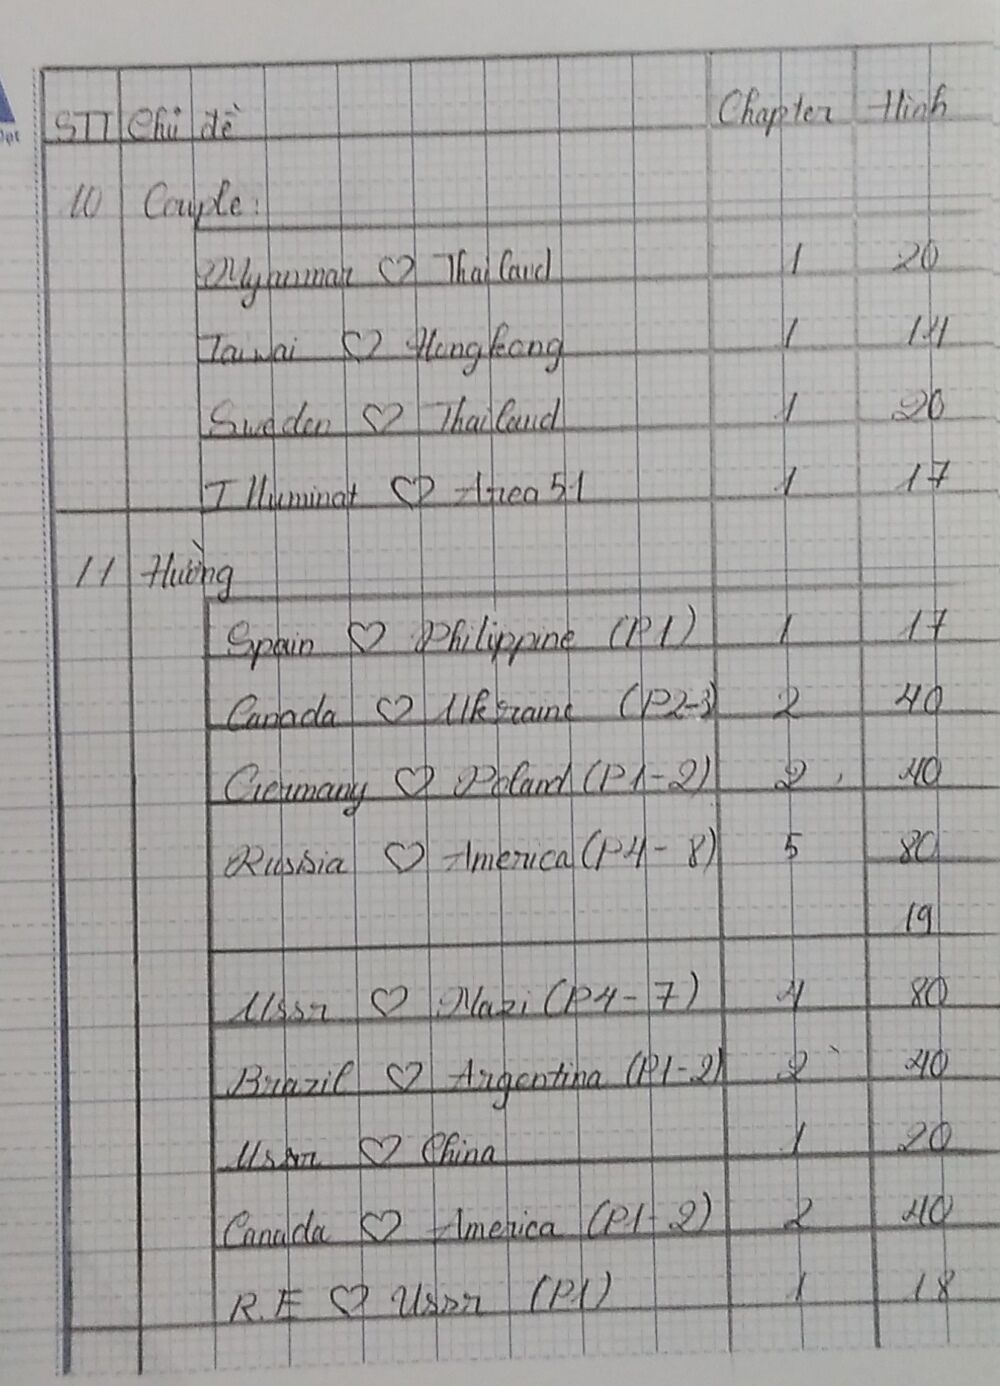 STT Chủ đề Chapter Hình
10 Couple:
Myanmar ♡ Thailand 1 20
Taiwai ♡ Hongkong 1 14
Sweden ♡ Thailand 1 20
Illuminat ♡ Area 51 1 17
11 Hường
Spain ♡ Philippine (P1) 1 17
Canada ♡ Ukraine (P2-3) 2 40
Germany ♡ Poland (P1-2) 2 40
Russia ♡ America (P4-8) 5 80
19
Ussr ♡ Nazi (P4-7) 4 80
Brazil ♡ Argentina (P1-2) 2 40
Ussr ♡ China 1 20
Canada ♡ America (P1-2) 2 40
R.E ♡ Ussr (P1) 1 18